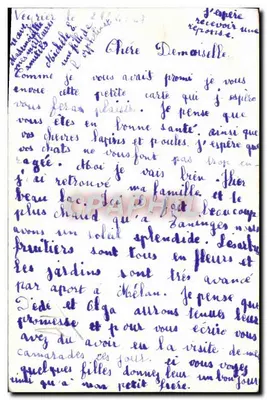 j'espère
recevoir une
réponse.
Chère Demoiselle.
Comme je vous avait promi je vous
envoie cette petite carte qui j'espère
vous feras plaisir. Je pense que
vous êtes en bonne santé, ainsi que
vos chèvres lapins et poules. j'espère que
vos chats ne vous font pas trop en
ragé. Moi je vais bien.
j'ai retrouvé ma famille et le
beau lac. Ici il fait beaucoup
plus chaud qu'à Taninges nous
avons un soleil splendide. Les arbres
fruitiers sont tous en fleurs et
les jardins sont très avancé
par aport à Mélan. Je pense que
Dédé et Olga aurons tenues leur
promesse et pour vous écrire vous
avez du avoir eu la visite de mes
camarades ces jour. si vous voyez
quelques filles donnez leur un bonjour
ainsi qu'a mon petit frère.